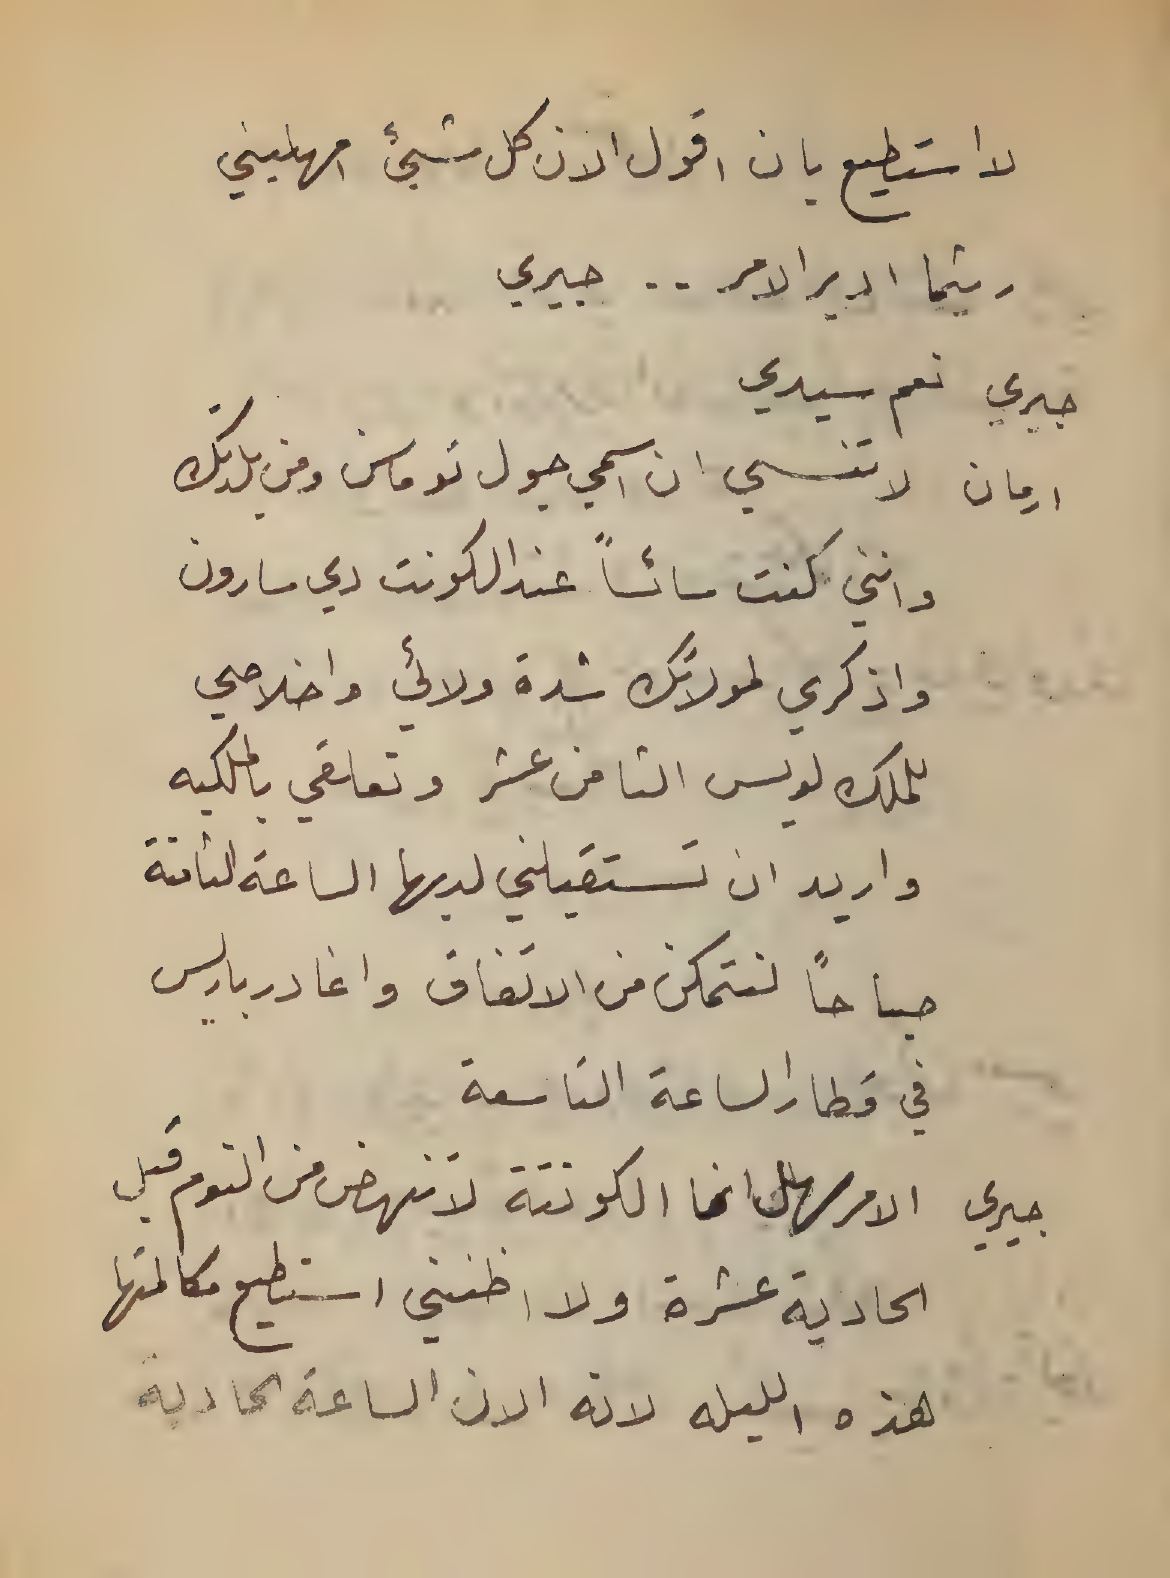 لا استطيع بان اقول الان كل شيئ امهليني
ريثما ادير الامر .. جيري
جيري نعم سيدي
ارمان لا تنسي ان اسمي جول توماس ومن بلدتك
وانني كنت سائساً عند الكونت دي سارون
واذكري لمولاتك شدة ولائي واخلاصي
للملك لويس الثامن عشر وتعلقي بالملكيه
واريد ان تستقبلني لديها الساعة الثامنة
صباحاً لنتمكن من الاتفاق واغادر باريس
في قطار الساعة التاسعة
جيري الامر سهل انما الكونتة لا تنهض من النوم قبل
الحادية عشرة ولا اظنني استطيع مكالمتها
هذه الليله لانه الان الساعة الحادية